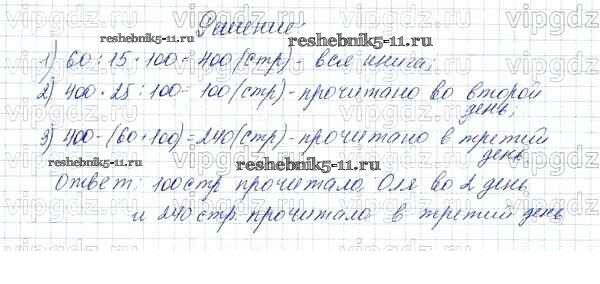 Решение
reshebnik5-11.ru
1) 60 : 15 · 100 = 400 (стр) - вся книга;
2) 400 · 25 : 100 = 100 (стр) - прочитано во второй
день;
3) 400 - (60 + 100) = 240 (стр) - прочитано в третий
день
reshebnik5-11.ru
Ответ: 100 стр прочитала Оля во 2 день
и 240 стр. прочитала в третий день
reshebnik5-11.ru
vipgdz
vipgdz
vipgdz